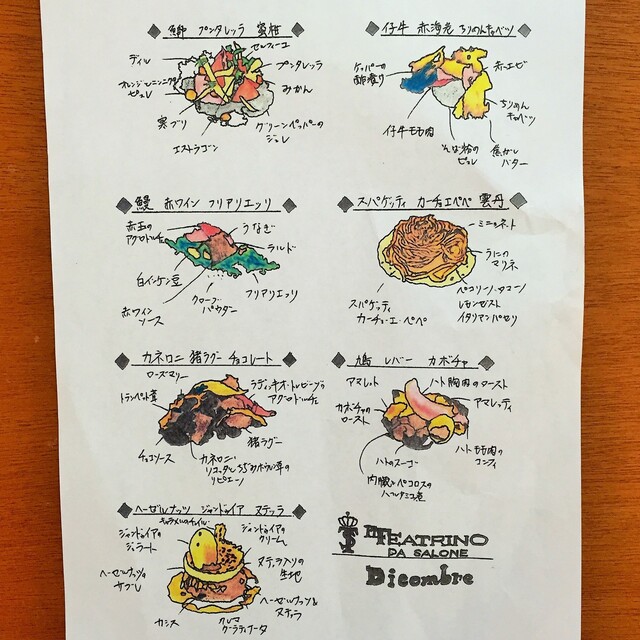 鰤 プンタレッラ 蜜柑
セルフィーユ
ディル
プンタレッラ
みかん
寒ブリ
グリーンペッパーの
ジュレ
エストラゴン
仔牛 赤海老 ちりめんキャベツ
ケッパーの
酢漬け
赤エビ
ちりめん
キャベツ
仔牛モモ肉
そば粉の
ピュレ
焦がし
バター
鰻 赤ワイン フリアリエッリ
赤玉の
アグロドルチェ
うなぎ
ラルド
白インゲン豆
フリアリエッリ
クローブ
パウダー
赤ワイン
ソース
スパゲッティ カーチョエペペ 雲丹
ミニョネット
うにの
マリネ
ペコリーノ・ロマーノ
レモンゼスト
イタリアンパセリ
スパゲッティ
カーチョ・エ・ペペ
カネロニ 猪ラグー チョコレート
ローズマリー
トランペット茸
アグロドルチェ
猪ラグー
チョコソース
カネロニ
リピエーノ
鳩 レバー カボチャ
アマレット
ハト胸肉のロースト
カボチャの
ロースト
アマレッティ
ハトモモ肉の
コンフィ
ハトのスーゴ
内臓とペコロスの
ヘーゼルナッツ ジャンドゥイア ヌテッラ
キャラメルのチュイル
ジャンドゥイアの
ジェラート
ジャンドゥイアの
クリーム
ヌテッラ入りの
生地
ヘーゼルナッツの
サブレ
ヘーゼルナッツ&
ヌテッラ
カシス
クレマ
IL TEATRINO
DA SALONE
Dicembre